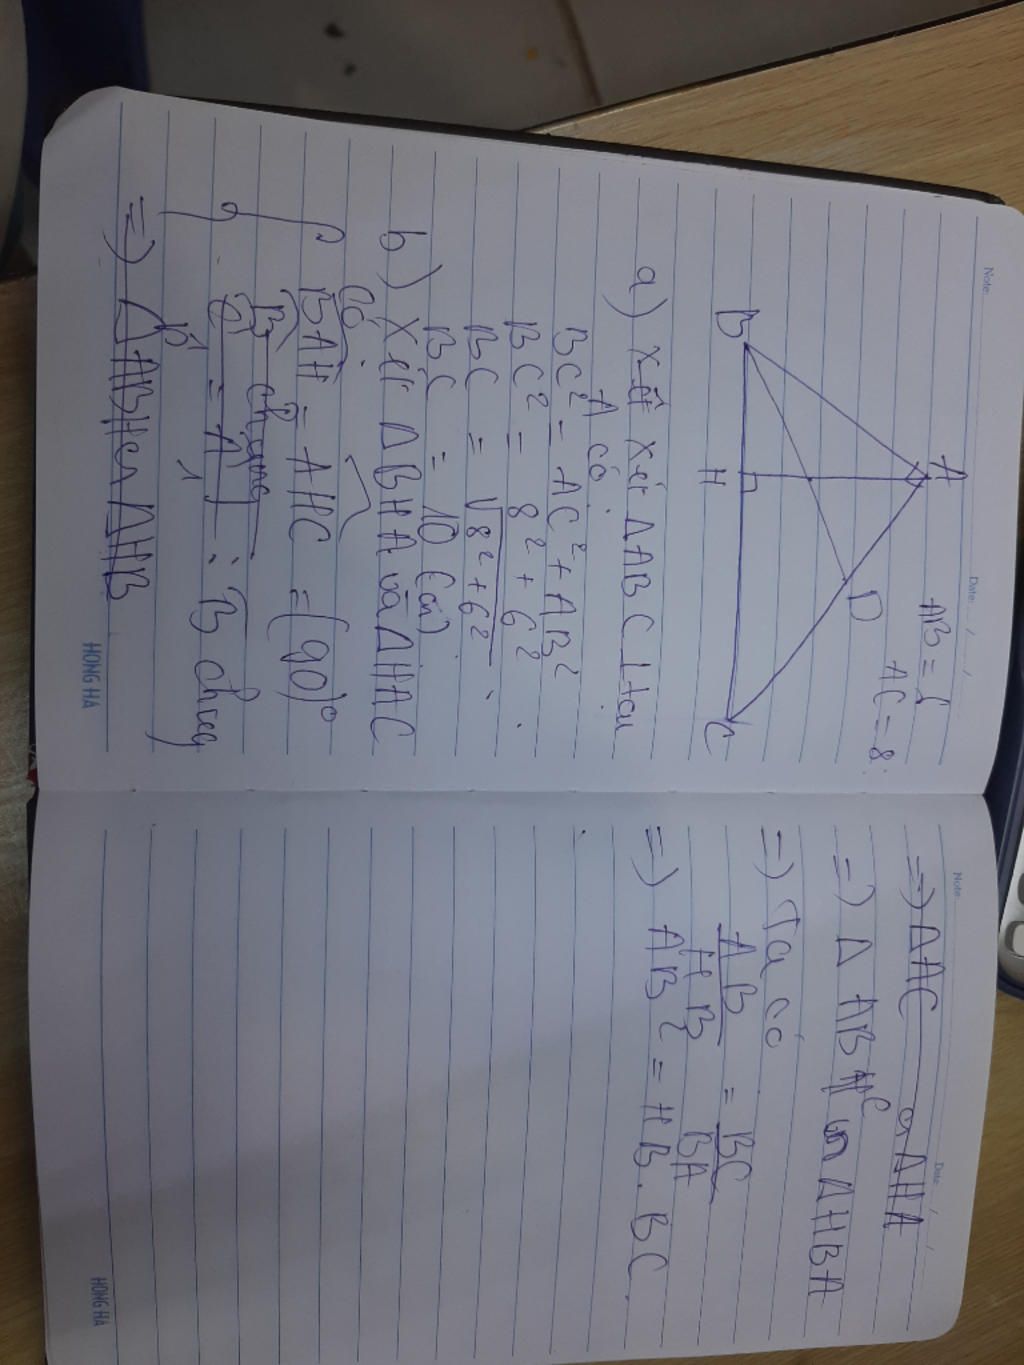 Note:
Date:
AB = 6
AC = 8
A
D
B
H
C
a) Xét Xét ΔABC ⊥ tại
A có
BC² = AC² + AB²
BC² = 8² + 6²
BC = √8² + 6²
BC = 10 (cm)
b) Xét ΔBHA và ΔHAC
Có:
BAH = AHC = (90)°
B chung
= A : B chung
=> ΔABH ᔕ ΔHB
HONG HA
Note:
Date:
=> ΔAC ᔕ ΔHA
=> ΔABC ᔕ ΔHBA
=> Ta có
AB/HB = BC/BA
=> AB² = HB. BC
HONG HA